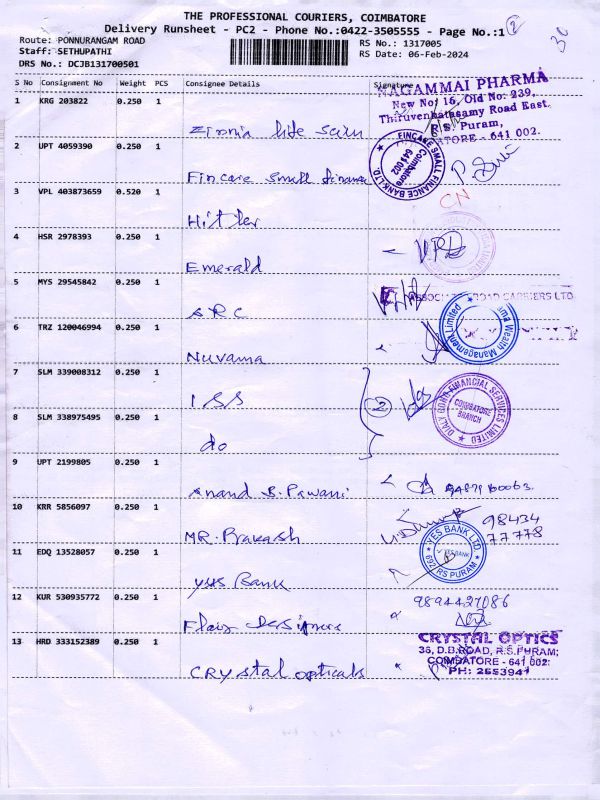 THE PROFESSIONAL COURIERS, COIMBATORE
Delivery Runsheet - PC2 - Phone No.:0422-3505555 - Page No.:1 2
30
Route: PONNURANGAM ROAD
Staff: SETHUPATHI
DRS No.: DCJB131700501
RS No.: 1317005
RS Date: 06-Feb-2024
S No Consignment No Weight PCS Consignee Details Signature
1 KRG 203822 0.250 1
NAGAMMAI PHARMA
New No: 16, Old No: 239,
Thiruvenkatasamy Road East,
R.S. Puram,
COIMBATORE - 641 002.
2 UPT 4059390 0.250 1 Fincare Small Finance
FINCARE SMALL FINANCE BANK LTD.
Coimbatore
641 002
3 VPL 403873659 0.520 1 Hitler
CN
4 HSR 2978393 0.250 1 Emerald
5 MYS 29545842 0.250 1 ARC
ASSOCIATED ROAD CARRIERS LTD
6 TRZ 120046994 0.250 1 Nuvama
Nuvama Wealth Management Limited
7 SLM 339008312 0.250 1 ISS
2
COIMBATORE
BRANCH
FINANCIAL SERVICES LIMITED
8 SLM 338975495 0.250 1 do
9 UPT 2199805 0.250 1 Anand B. Pawani
10 KRR 5856097 0.250 1 MR. Prakash
98434
77778
11 EDQ 13528057 0.250 1 yes Bank
YES BANK LTD
YES BANK
RS PURAM
12 KUR 530935772 0.250 1
9894427086
13 HRD 333152389 0.250 1 Crystal opticals
CRYSTAL OPTICS
36, D.B.ROAD, R.S.PURAM,
COIMBATORE - 641 002.
PH: 2553941